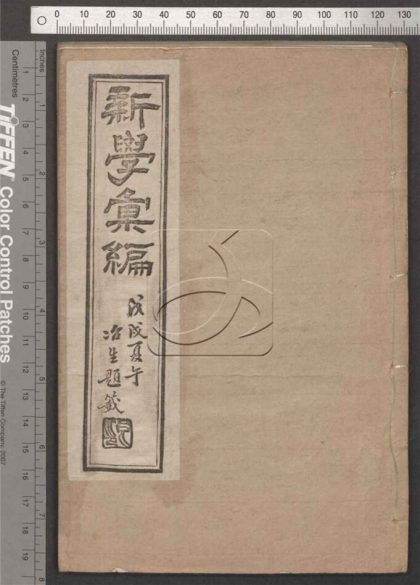 新學彙編
戊戌夏午
冶生題籤
0 10 20 30 40 50 60 70 80 90 100 110 120 130
Inches
Centimetres
TIFFEN Color Control Patches
© The Tiffen Company, 2007
1 2 3 4 5 6 7 8
1 2 3 4 5 6 7 8 9 10 11 12 13 14 15 16 17 18 19